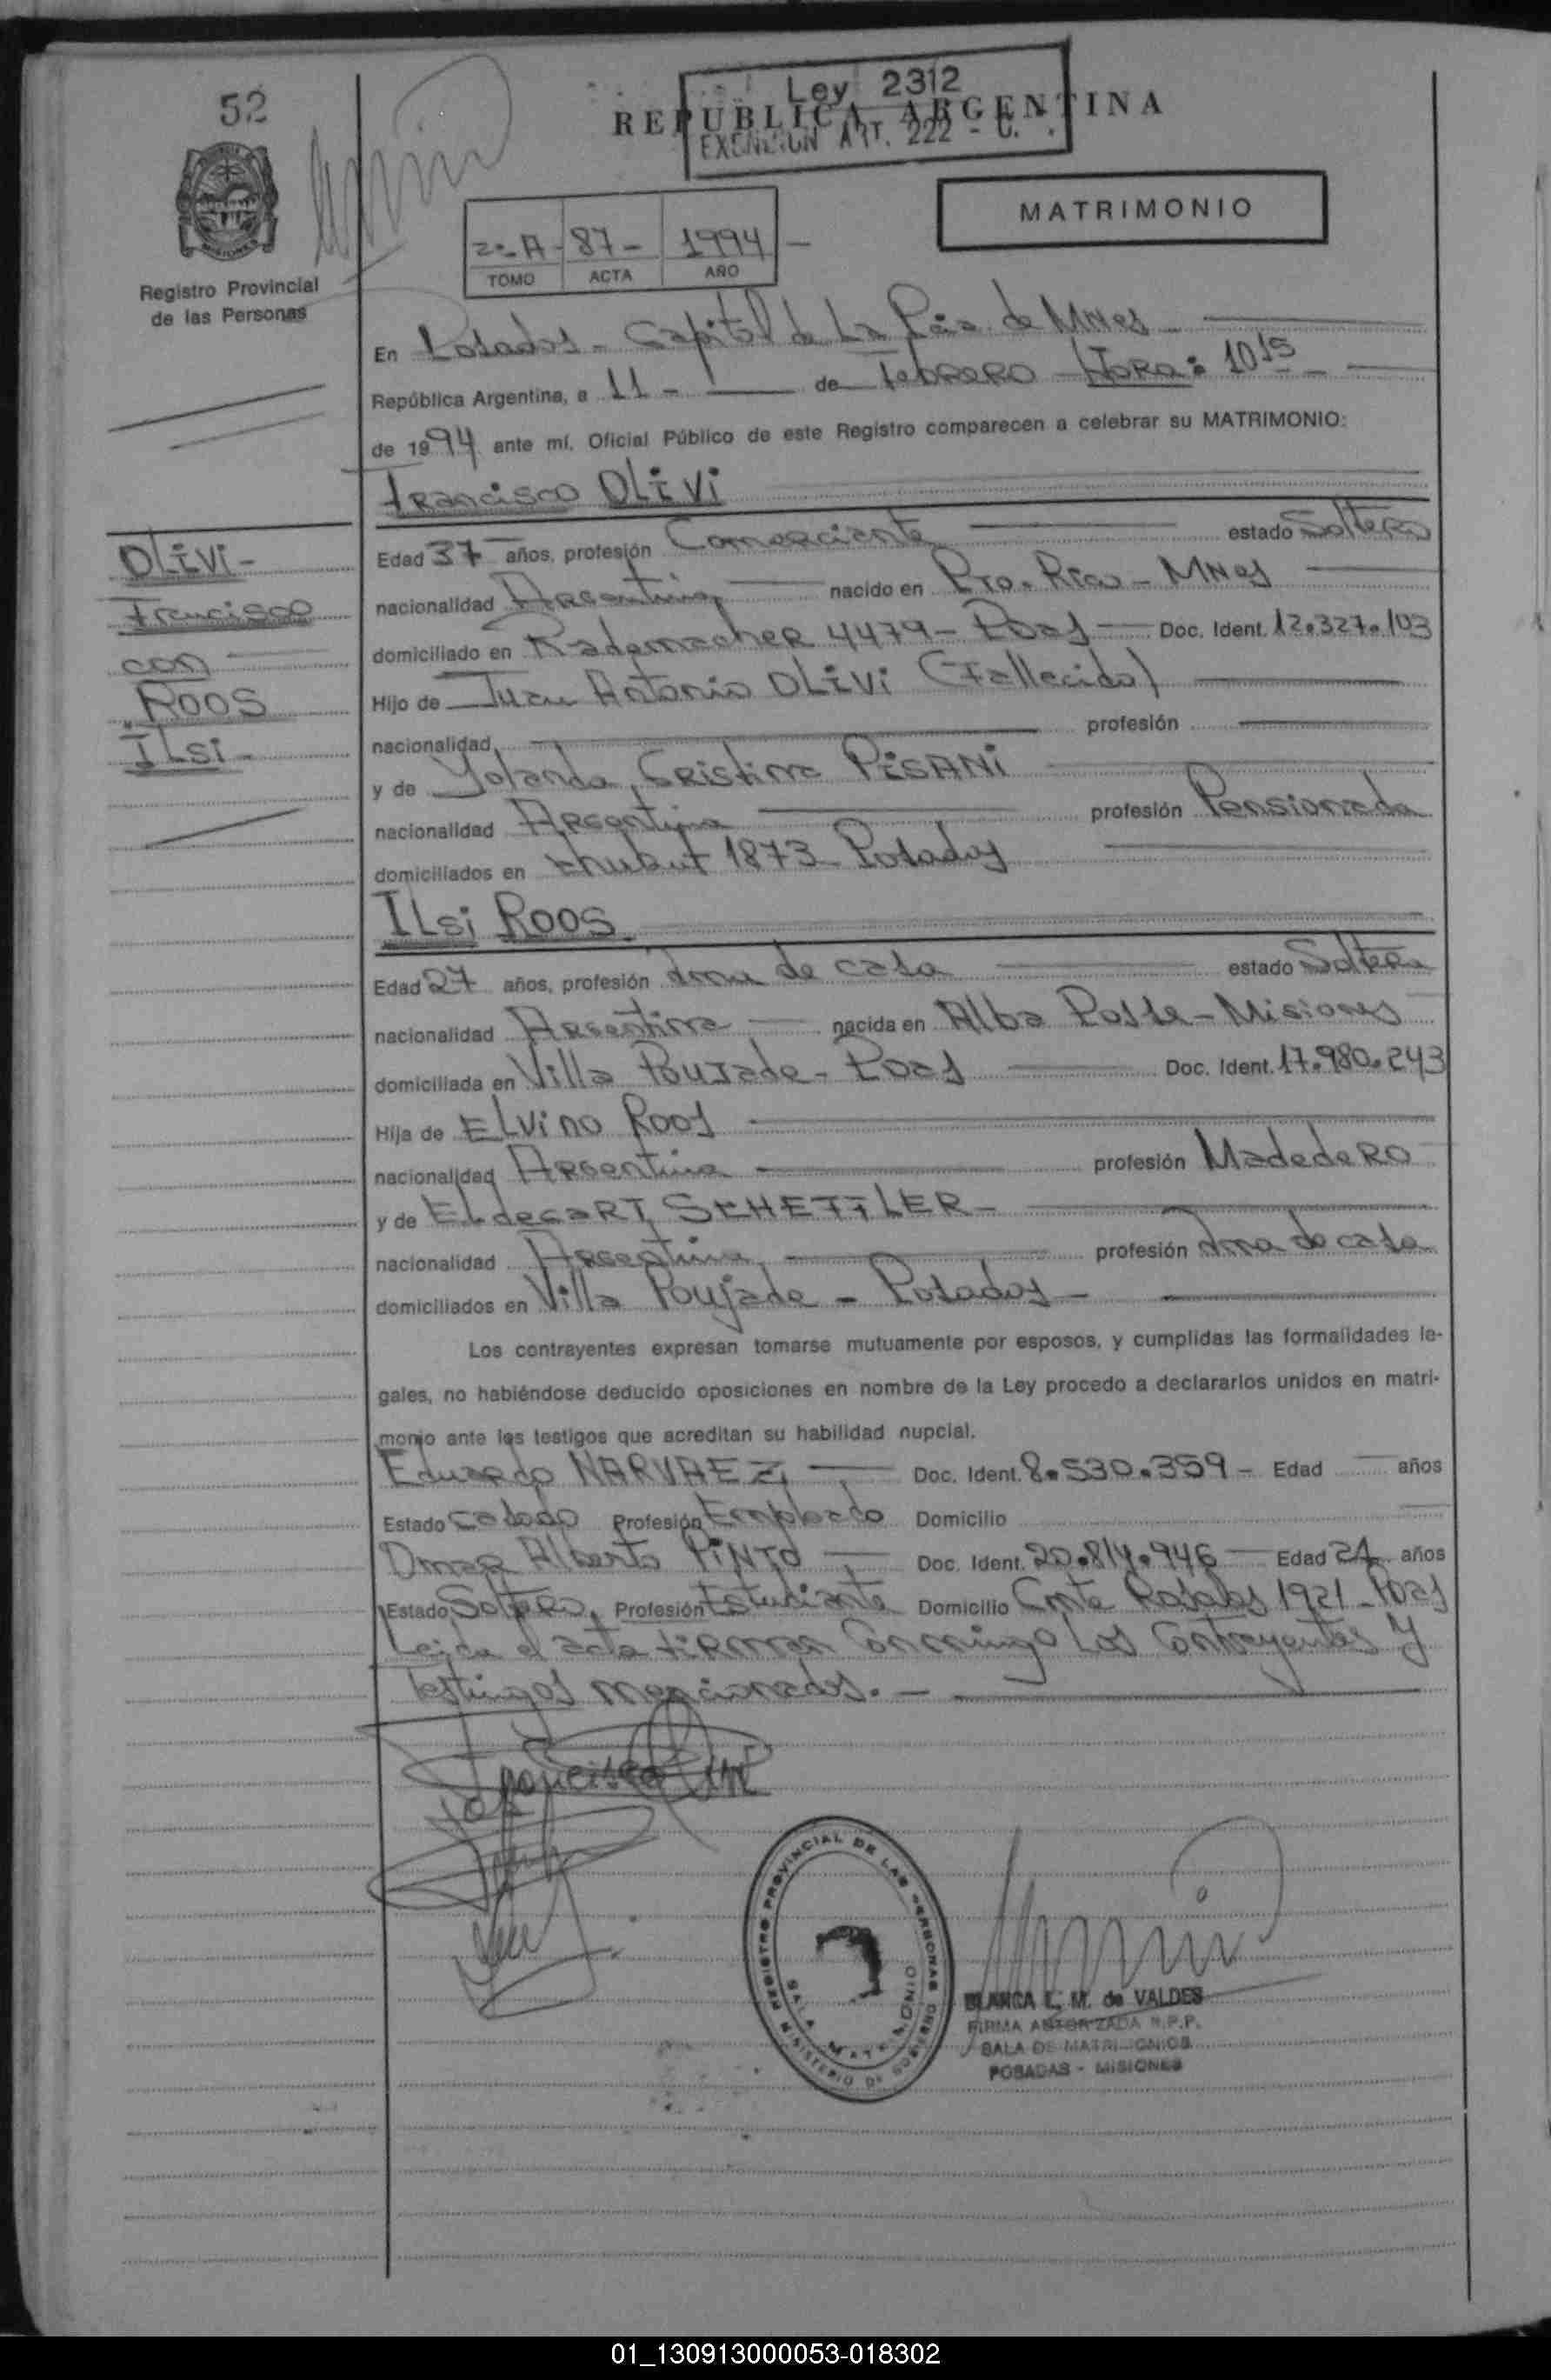 52
Ley 2312
REPUBLICA ARGENTINA
EXENCION ART. 222 - C.
MATRIMONIO
2º A - 87 - 1994 -
TOMO ACTA AÑO
Registro Provincial
de las Personas
En Posadas - Capital de La Pcia de Mnes
República Argentina, a 11 - de Febrero Hora: 10 15 -
de 1994 ante mí, Oficial Público de este Registro comparecen a celebrar su MATRIMONIO:
Francisco OLIVI
OLIVI -
Francisco
con
ROOS
ILsi -
Edad 37 años, profesión Comerciante estado Soltero
nacionalidad Argentina nacido en Pto. Rico - Mnes
domiciliado en Rademacher 4479 - Pdas Doc. Ident. 12.327.103
Hijo de Juan Antonio OLIVI (Fallecido)
nacionalidad profesión
y de Yolanda Cristina PISANI
nacionalidad Argentina profesión Pensionada
domiciliados en Chubut 1873 - Posadas
ILsi ROOS
Edad 27 años, profesión Ama de casa estado Soltera
nacionalidad Argentina nacida en Alba Posse - Misiones
domiciliada en Villa Poujade - Pdas Doc. Ident. 17.980.243
Hija de ELvino Roos
nacionalidad Argentina profesión Madedero
y de ELdegart SCHEFFLER -
nacionalidad Argentina profesión Ama de casa
domiciliados en Villa Poujade - Posadas -
Los contrayentes expresan tomarse mutuamente por esposos, y cumplidas las formalidades le-
gales, no habiéndose deducido oposiciones en nombre de la Ley procedo a declararlos unidos en matri-
monio ante los testigos que acreditan su habilidad nupcial.
Eduardo NARVAEZ Doc. Ident. 8.530.359 - Edad años
Estado casado Profesión Empleado Domicilio
Omar Alberto PINTO Doc. Ident. 20.814.946 Edad 24 años
Estado Soltero Profesión Estudiante Domicilio Cnte Rosales 1921 - Pdas
Leida el acta firman conmingo Los contrayentes y
testingos mencionados. -
Francisco Olivi
REGISTRO PROVINCIAL DE LAS PERSONAS
MINISTERIO DE GOBIERNO
SALA MATRIMONIO
BLANCA L. M. de VALDES
FIRMA AUTORIZADA R.P.P.
SALA DE MATRIMONIOS
POSADAS - MISIONES
01_130913000053-018302